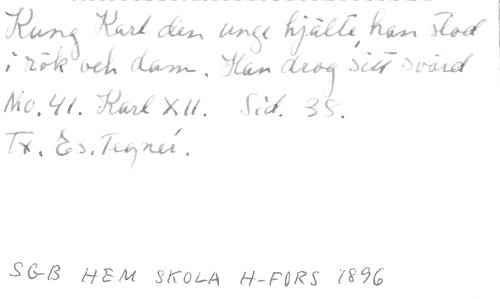 Kung Karl den unge hjälte, han stod
i rök och dam. Han drog sitt svärd
No. 41. Karl XII. Sid. 38.
Tx. Es. Tegnér.
SGB HEM SKOLA H-FORS 1896